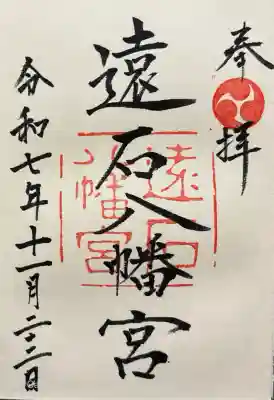 奉拝
遠石八幡宮
遠石
八幡宮
令和七年十一月二十二日